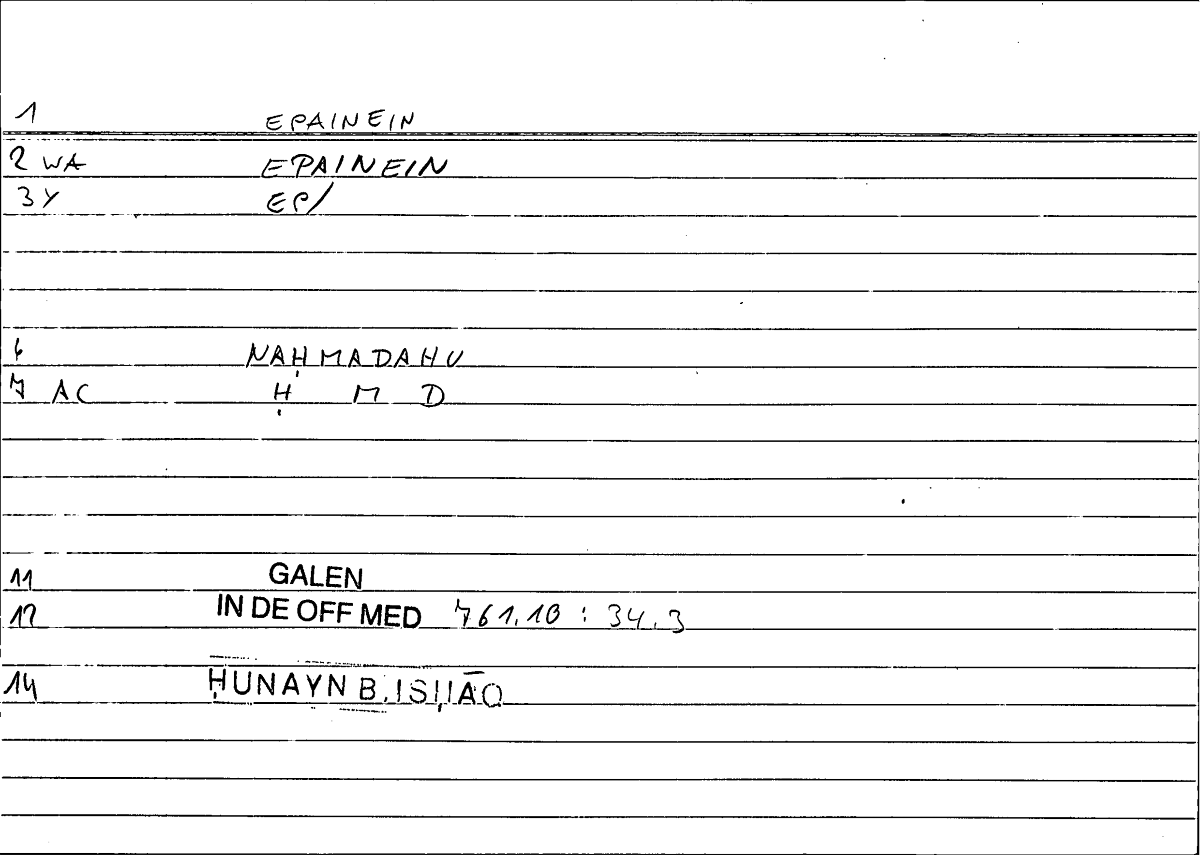 1 EPAINEIN
2 WA EPAINEIN
3 Y EP/
6 NAḤMADAHU
7 AC Ḥ M D
11 GALEN
12 IN DE OFF MED 761.10 : 34.3
14 ḤUNAYN B. ISḤĀQ